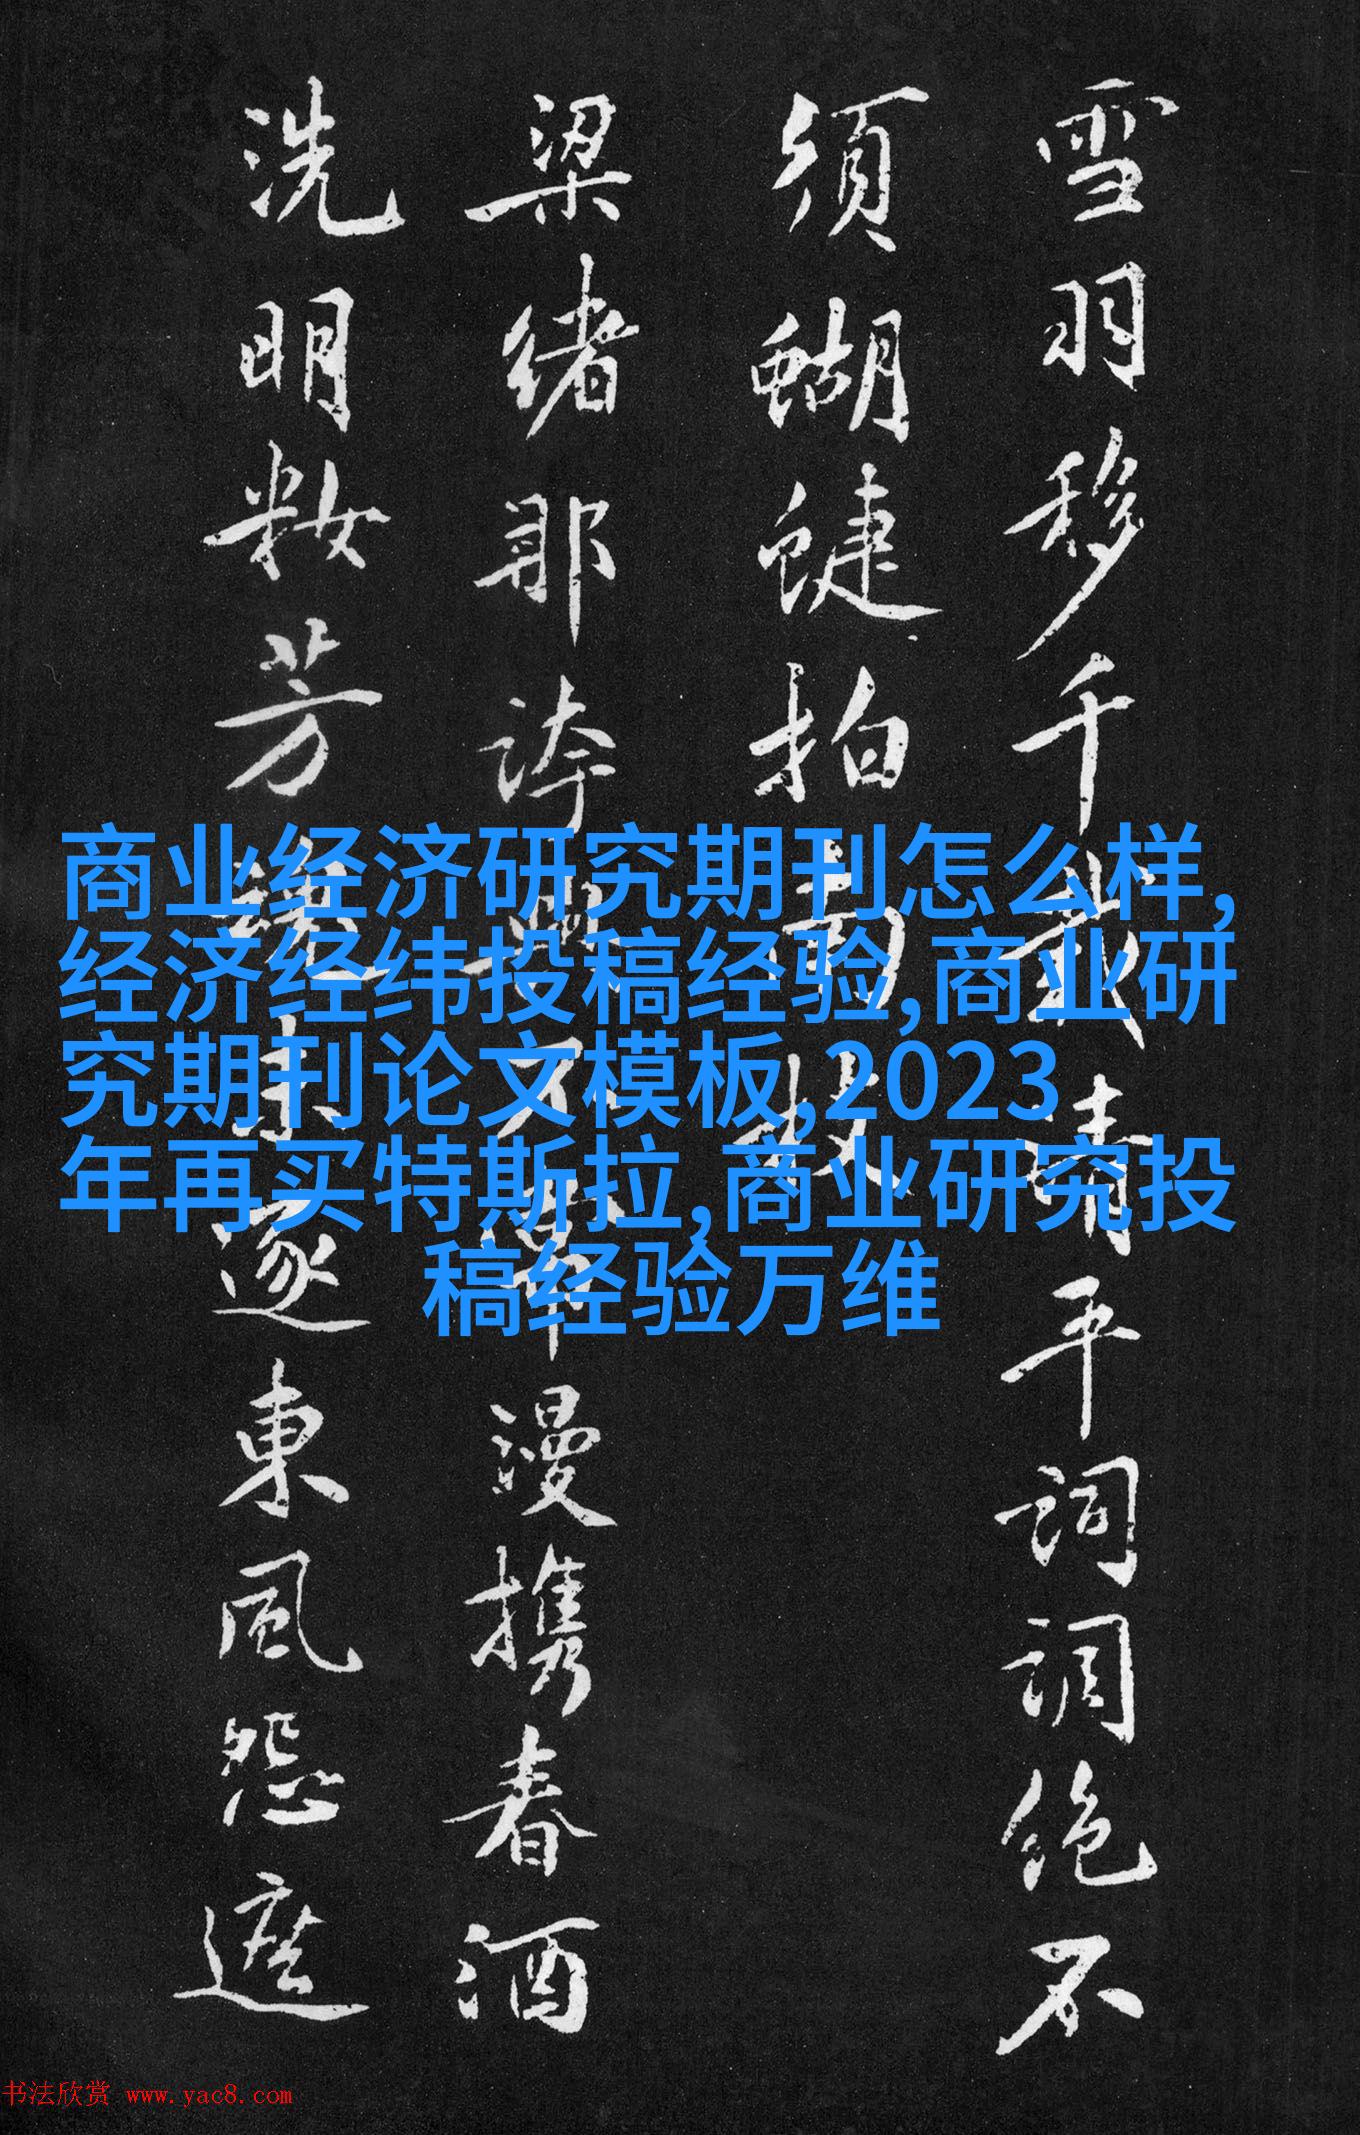 雪羽移千載清平詞調絶不
須蝴蜨拍
梁緒那誇不漫携春酒
洗明籹芳逐東風怨遮
商业经济研究期刊怎么样,
经济经纬投稿经验,商业研
究期刊论文模板,2023
年再买特斯拉,商业研究投
稿经验万维
书法欣赏 www.yac8.com